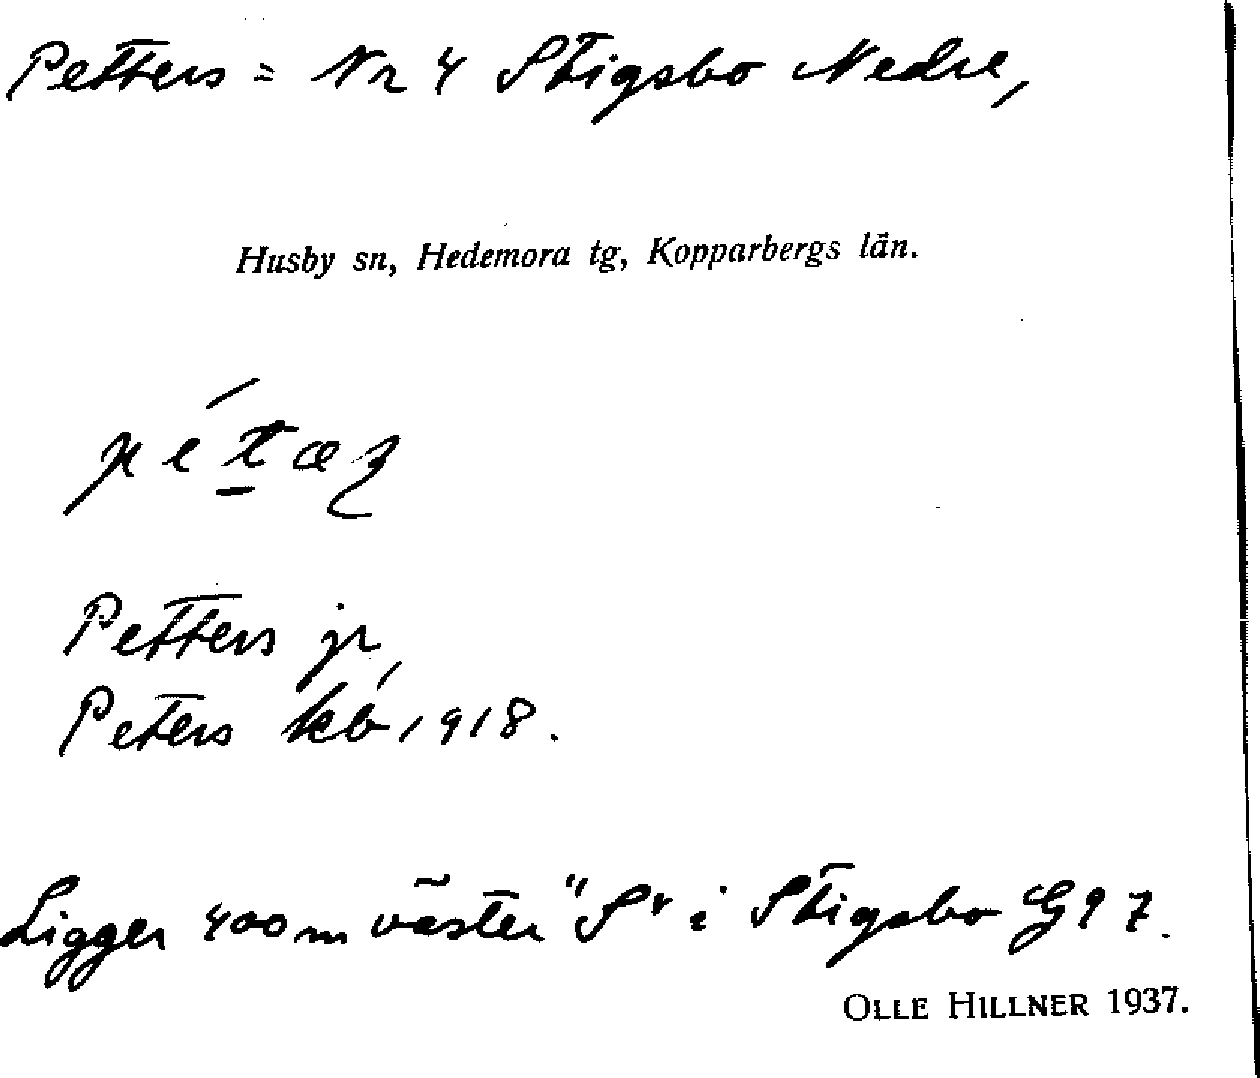 Petters = Nr 4 Stigsbo Nedre,
Husby sn, Hedemora tg, Kopparbergs län.
Petters jr,
Peters kb, 1918.
Ligger 400 m väster "S" i Stigsbo G97.
OLLE HILLNER 1937.